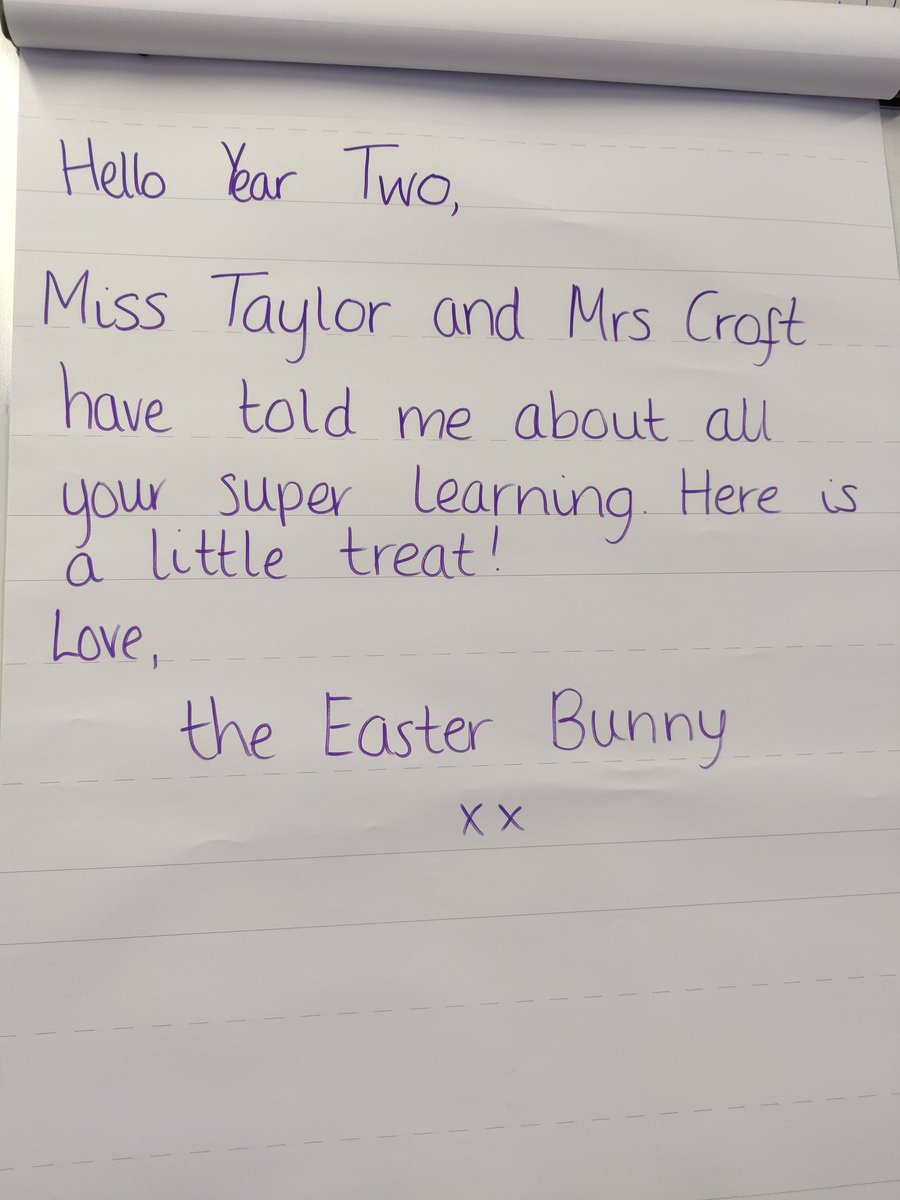 Hello Year Two,
Miss Taylor and Mrs Croft
have told me about all
your super learning. Here is
a little treat!
Love,
the Easter Bunny
x x